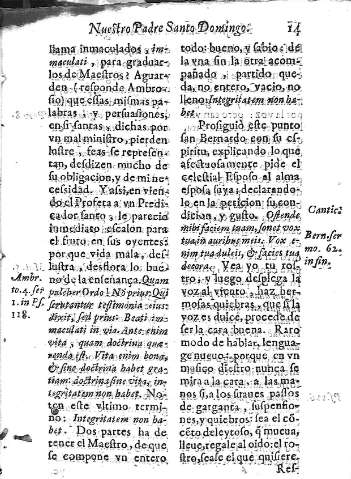 Nuestro Padre Santo Domingo. 14
llama inmaculados, im-
maculati, para graduac-
los de Maestros? Aguar-
den (responde Ambro-
sio) que essas mismas pa-
labras, y persuasiones,
en si santas, dichas por
vn mal ministro, pierden
lustre, feas se represen-
tan, desdizen mucho de
su obligacion, y de mi ne-
cessidad. Y assi, en vien-
do el Profeta a vn Predi-
cador santo, le pareciò
inmediato escalon para
el fruto en sus oyentes:
por que vida mala, des-
lustra, desflora lo bue-
no de la enseñança. Quam
pulcher Ordo! Nõ prius Qui
scrutantur testimonia eius:
dixit, sed prius: Beati im-
maculati in via. Ante enim
vita, quam doctrina quæ-
renda est. Vita enim bona,
& sine doctrina habet gra-
tiam: doctrina sine vita, in-
tegritatem non habet. No-
ten este vltimo termi-
no: Integritatem non ha-
bet. Dos partes ha de
tener el Maestro, de que
se compone vn entero
Ambr.
to. 4. ser
1. in Ps.
118.
todo: bueno, y sabio: de
la vna sin la otra acom-
pañado, partido que-
da, no entero, vacio, no
lleno: Integritatem non ha-
bet.
Prosiguiò este punto
san Bernardo con su es-
piritu, explicando lo que
afectuosamente pide el
celestial Esposo al alma
esposa suya: declarando-
lo en la peticion su con-
dicion, y gusto. Ostende
mihi faciem tuam, sonet vox
tua in auribus meis: Vox e-
nim tua dulcis, & facies tua
decora. Vea yo tu ros-
tro, y luego despliega la
voz al viento, haz her-
mosas quiebras, que si la
voz es dulce, procede de
ser la cara buena. Raro
modo de hablar, lengua-
ge nueuo: porque en vn
musico diestro nunca se
mira a la cara, a las ma-
nos si, a los suaues passos
de garganta, suspensio-
nes, y quiebros: sea el cõ-
cëto deleytoso, q̃ mueua,
lleue, regale al oido: el ro-
stro, sease el que quisiere.
Cantic.
Bern. ser
mo. 62.
in fin.
Res-